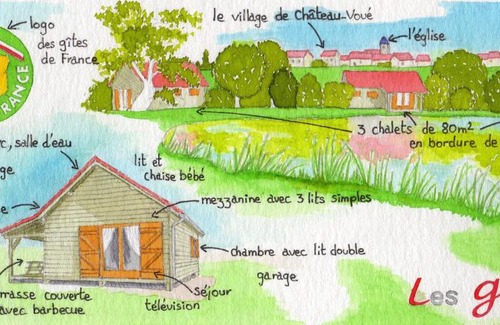 logo
des gîtes
de France
FRANCE
le village de Château-Voué
l'église
3 chalets de 80m²
en bordure de
salle d'eau
lit et
chaise bébé
mezzanine avec 3 lits simples
chambre avec lit double
garage
séjour
télévision
couverte
avec barbecue
Les g